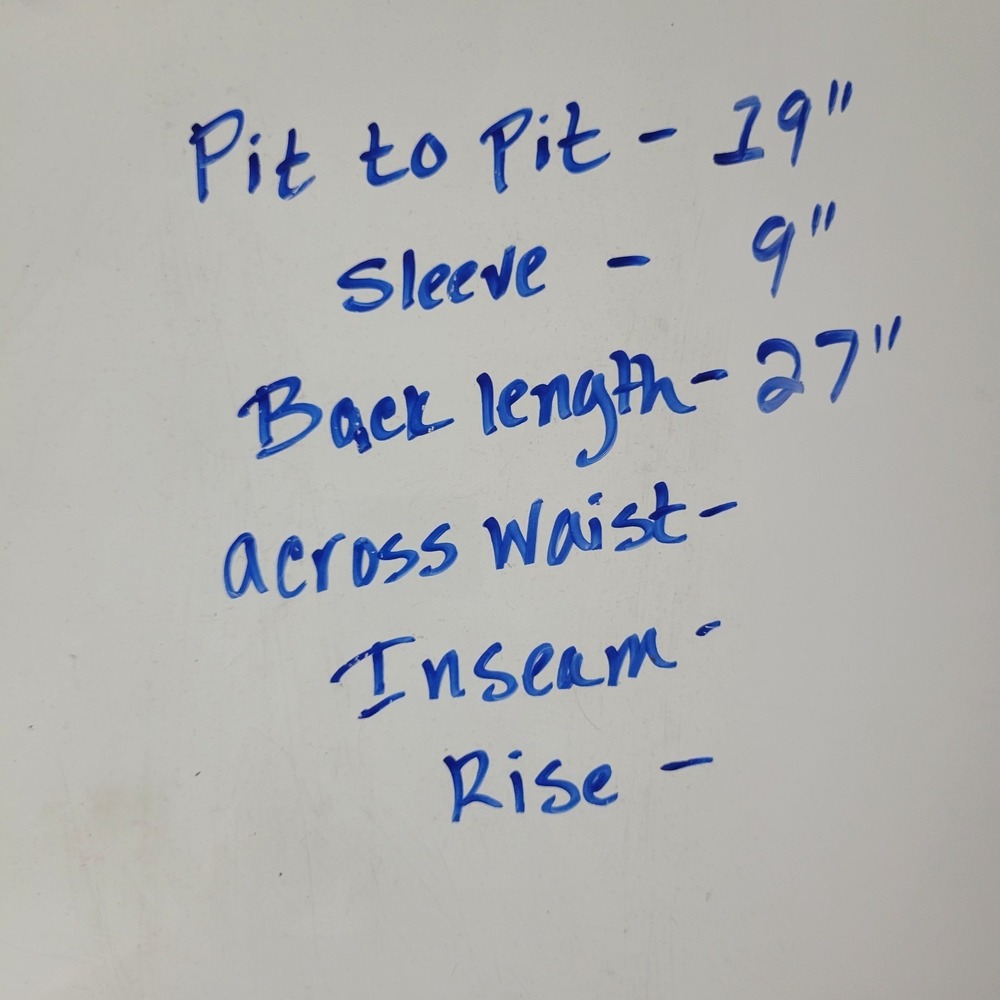 Pit to Pit - 19"
Sleeve - 9"
Back length - 27"
across Waist -
Inseam -
Rise -